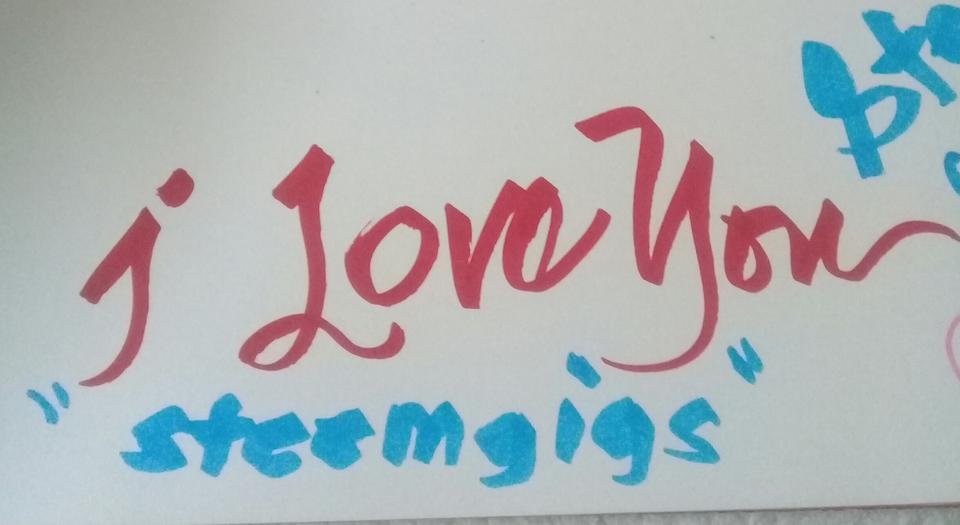 i Love You
"steemgigs"